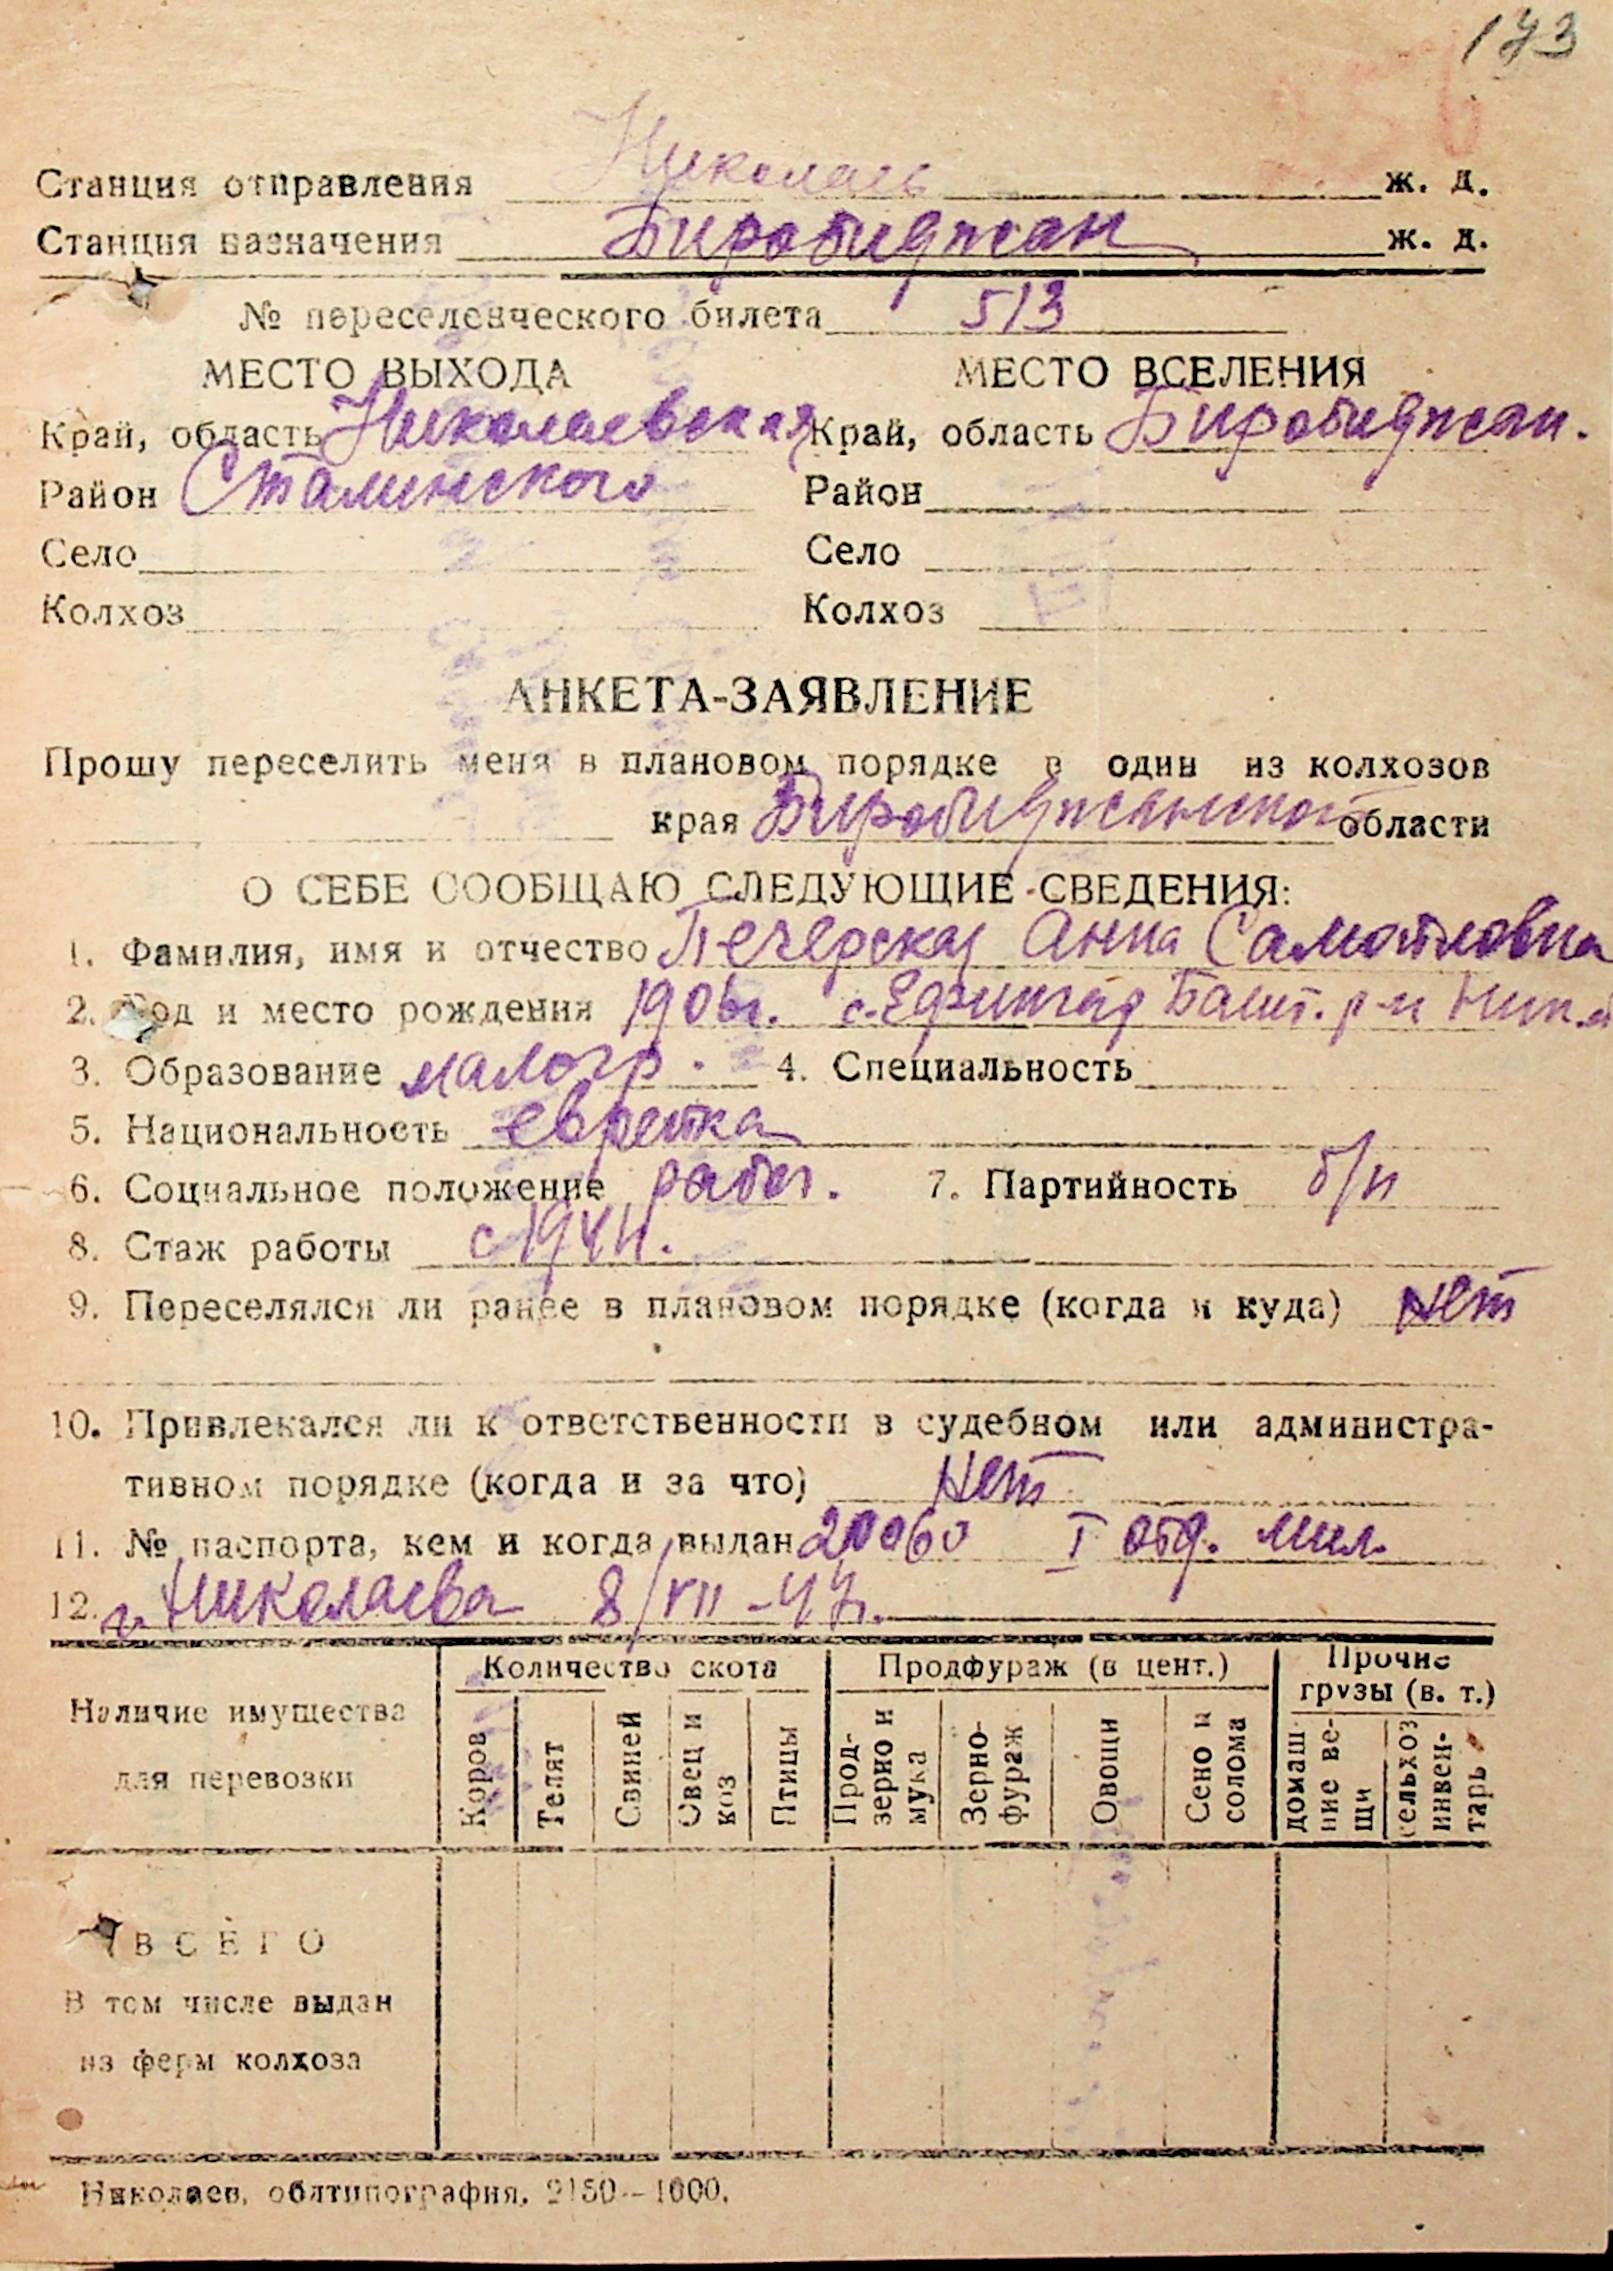 173
Станция отправления Николаев ж. д.
Станция назначения Биробиджан ж. д.
№ переселенческого билета 513
МЕСТО ВЫХОДА МЕСТО ВСЕЛЕНИЯ
Край, область Николаевская Край, область Биробиджан.
Район Сталинского Район
Село Село
Колхоз Колхоз
АНКЕТА-ЗАЯВЛЕНИЕ
Прошу переселить меня в плановом порядке в один из колхозов
края Биробиджанской области
О СЕБЕ СООБЩАЮ СЛЕДУЮЩИЕ СВЕДЕНИЯ:
1. Фамилия, имя и отчество Печерская Анна Самойловна
2. Год и место рождения 1906г. с. Ефингар Башт. р-н Ник.
3. Образование малогр. 4. Специальность
5. Национальность еврейка
6. Социальное положение рабоч. 7. Партийность б/п
8. Стаж работы с 1944.
9. Переселялся ли ранее в плановом порядке (когда и куда) нет
10. Привлекался ли к ответственности в судебном или администра-
тивном порядке (когда и за что) нет
11. № паспорта, кем и когда выдан 20060 I отд. мил.
12. г. Николаева 8/VII-47г.
Наличие имущества для перевозки
Количество скота
Продфураж (в цент.)
Прочие грузы (в. т.)
Коров
Телят
Свиней
Овец и коз
Птицы
Прод-зерно и мука
Зерно-фураж
Овощи
Сено и солома
домаш-ние ве-щи
сельхоз инвен-тарь
ВСЕГО
В том числе выдан
из ферм колхоза
Николаев, облтипография. 2150—1000.